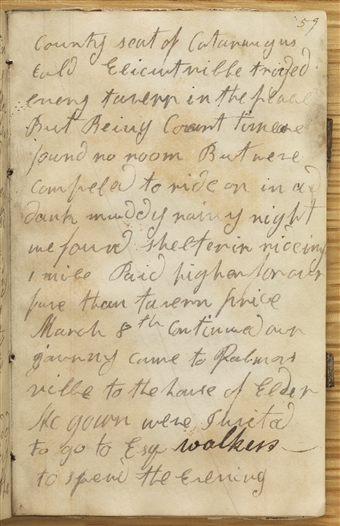 59
County seat of Cataraugus
Calld Elicutville tried
every tavern in the place
But Being Court time we
found no room But were
compeled to ride on in a
dark muddy rainy night
we found shelter in rideing
1 mile Paid higher for our
fare than tavern price
March 8th Continued our
journy came to Palmers
ville to the house of Elder
Mc gown were Invited
to go to Esq walkers
to spend the Evening